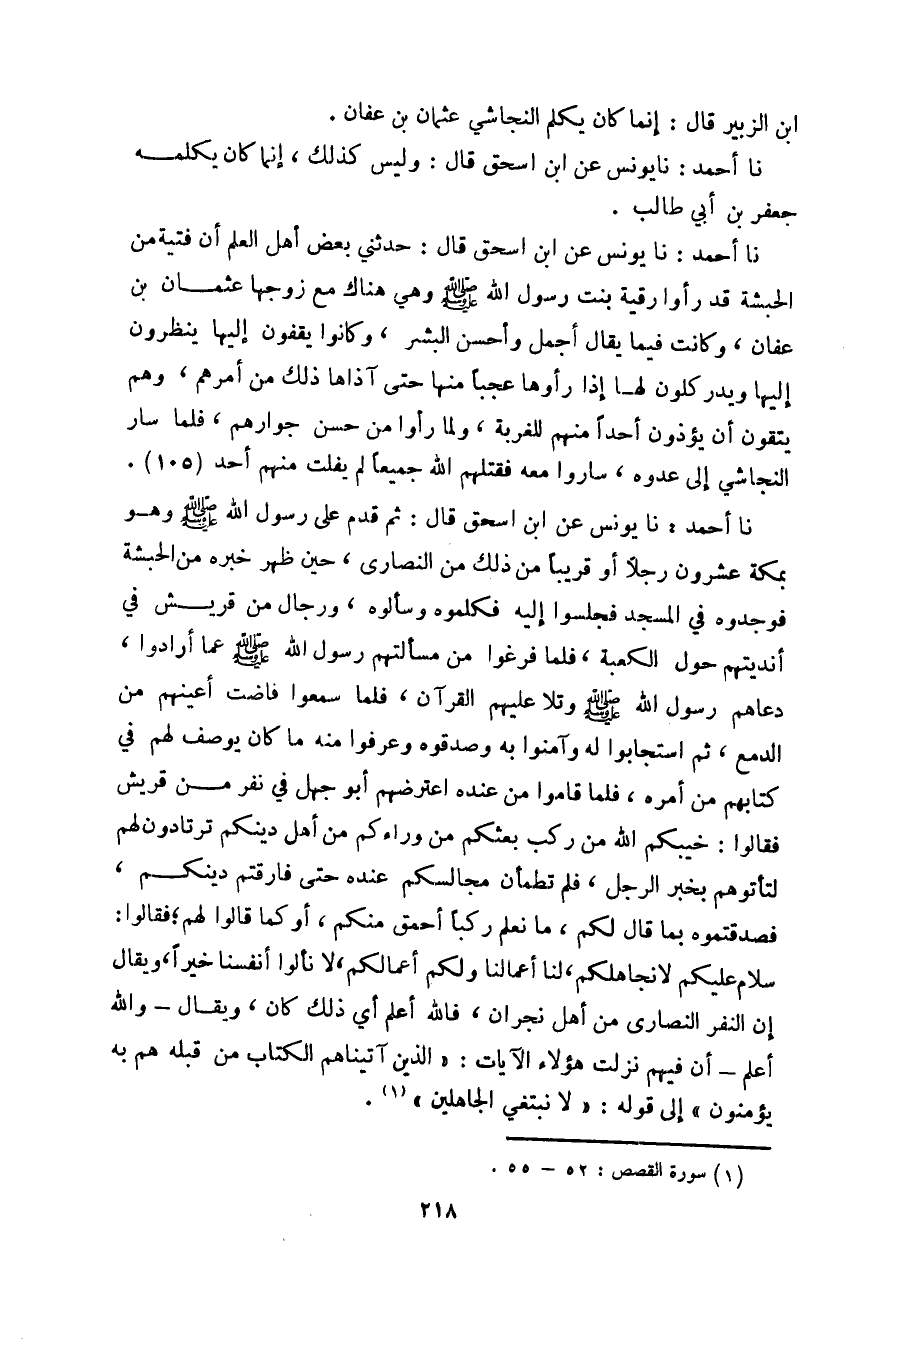 ابن الزبير قال : إنما كان يكلم النجاشي عثمان بن عفان .
نا أحمد : نايونس عن ابن اسحق قال : وليس كذلك ، إنما كان يكلمـــه
جعفر بن أبي طالب .
نا أحمد : نا يونس عن ابن اسحق قال : حدثني بعض أهل العلم أن فتية من
الحبشة قد رأوا رقية بنت رسول الله ﷺ وهي هناك مع زوجها عثمـــان بن
عفان ، وكانت فيما يقال أجمل وأحسن البشر ، وكانوا يقفون إليها ينظرون
إليها ويدركلون لهـا إذا رأوها عجباً منها حتى آذاها ذلك من أمرهم ، وهم
يتقون أن يؤذون أحداً منهم للغربة ، ولما رأوا من حسن جوارهم ، فلما سار
النجاشي إلى عدوه ، ساروا معه فقتلهم الله جميعاً لم يفلت منهم أحد (١٠٥) .
نا أحمد : نا يونس عن ابن اسحق قال : ثم قدم على رسول الله ﷺ وهـو
بمكة عشرون رجلاً أو قريباً من ذلك من النصارى ، حين ظهر خبره من الحبشة
فوجدوه في المسجد فجلسوا إليه فكلموه وسألوه ، ورجال من قريـــش في
أنديتهم حول الكعبة ، فلما فرغوا من مسألتهم رسول الله ﷺ عما أرادوا ،
دعاهم رسول الله ﷺ وتلا عليهم القرآن ، فلما سمعوا فاضت أعينهم من
الدمع ، ثم استجابوا له وآمنوا به وصدقوه وعرفوا منه ما كان يوصف لهم في
كتابهم من أمره ، فلما قاموا من عنده اعترضهم أبو جهل في نفر مـــن قريش
فقالوا : خيبكم الله من ركب بعثكم من وراءكم من أهل دينكم ترتادون لهم
لتأتوهم بخبر الرجل ، فلم تطمأن مجالسكم عنده حتى فارقتم دينكـــم ،
فصدقتموه بما قال لكم ، ما نعلم ركباً أحمق منكم ، أو كما قالوا لهم ؛ فقالوا :
سلام عليكم لانجاهلكم ، لنا أعمالنا ولكم أعمالكم ، لا نألوا أنفسنا خيراً ، ويقال
إن النفر النصارى من أهل نجران ، فالله أعلم أي ذلك كان ، ويقـال – والله
أعلم – أن فيهم نزلت هؤلاء الآيات : « الذين آتيناهم الكتاب من قبله هم به
يؤمنون » إلى قوله : « لا نبتغي الجاهلين » (١) .
(١) سورة القصص : ٥٢ – ٥٥ .
٢١٨